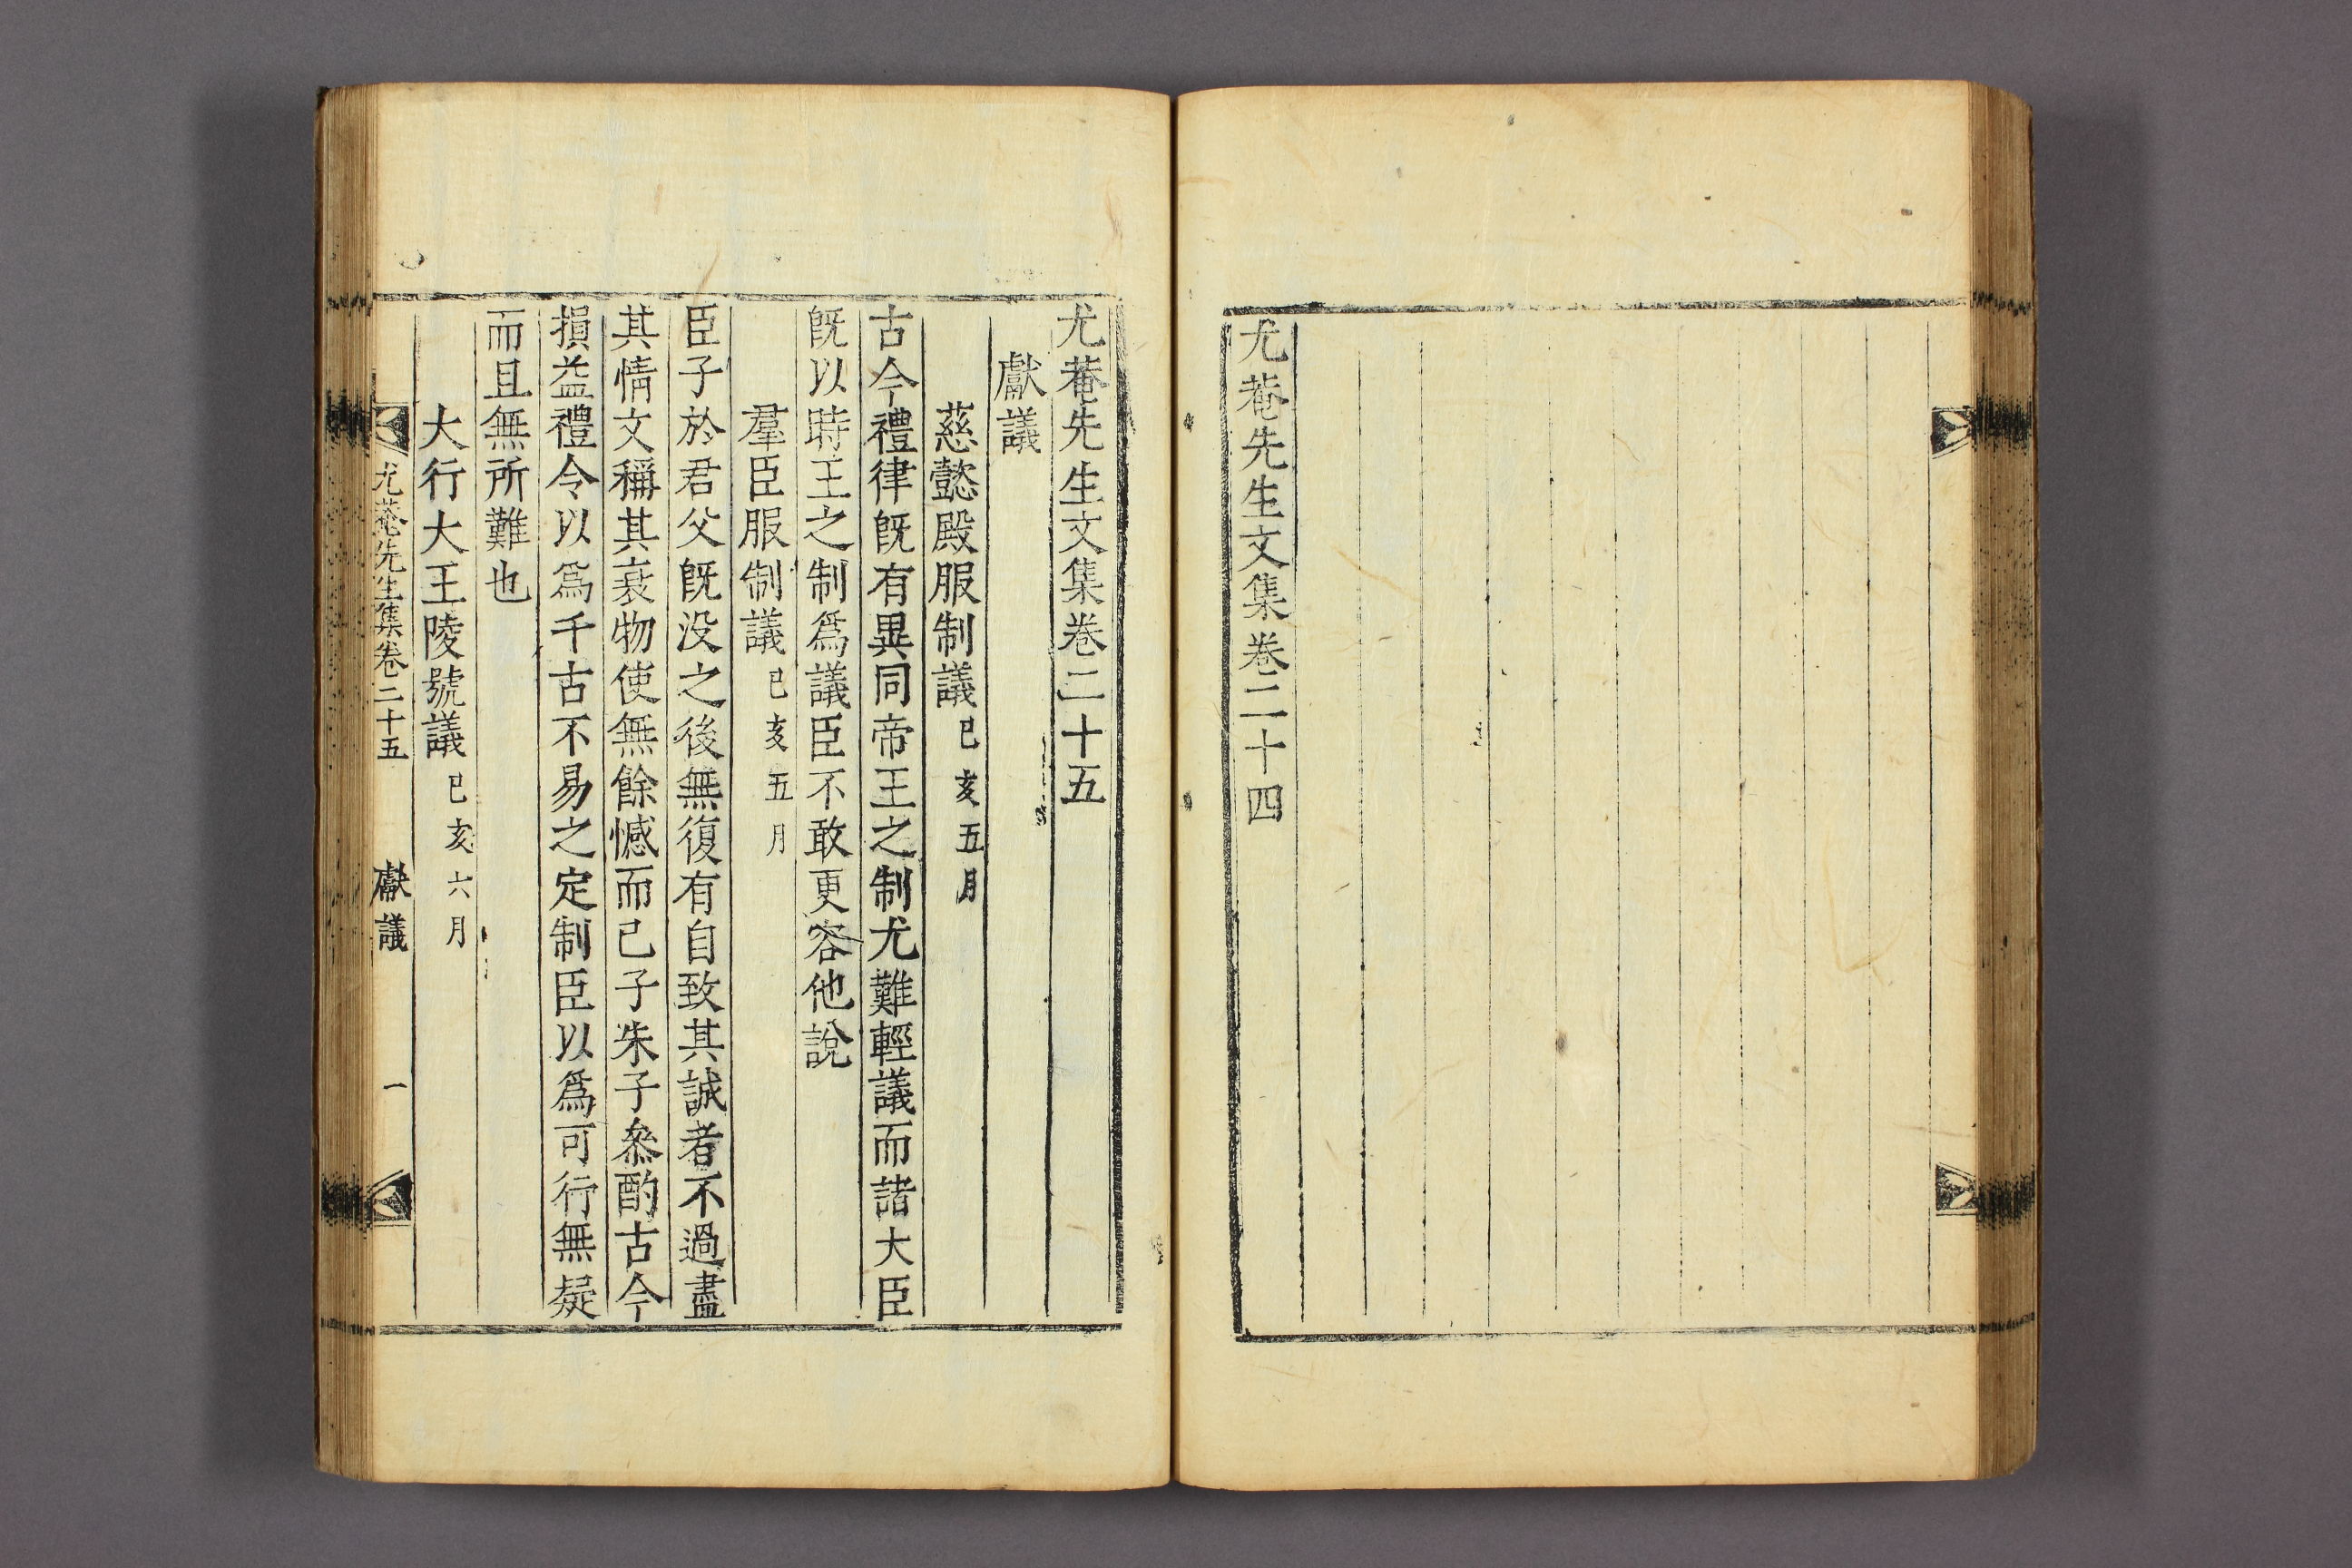 尤菴先生文集卷二十四
尤菴先生文集卷二十五
獻議
慈懿殿服制議 己亥五月
古今禮律旣有異同帝王之制尤難輕議而諸大臣
旣以時王之制爲議臣不敢更容他說
羣臣服制議 己亥五月
臣子於君父旣沒之後無復有自致其誠者不過盡
其情文稱其衰物使無餘憾而已子朱子叅酌古今
損益禮令以爲千古不易之定制臣以爲可行無疑
而且無所難也
大行大王陵號議 己亥六月
尤菴先生集卷二十五 獻議 一